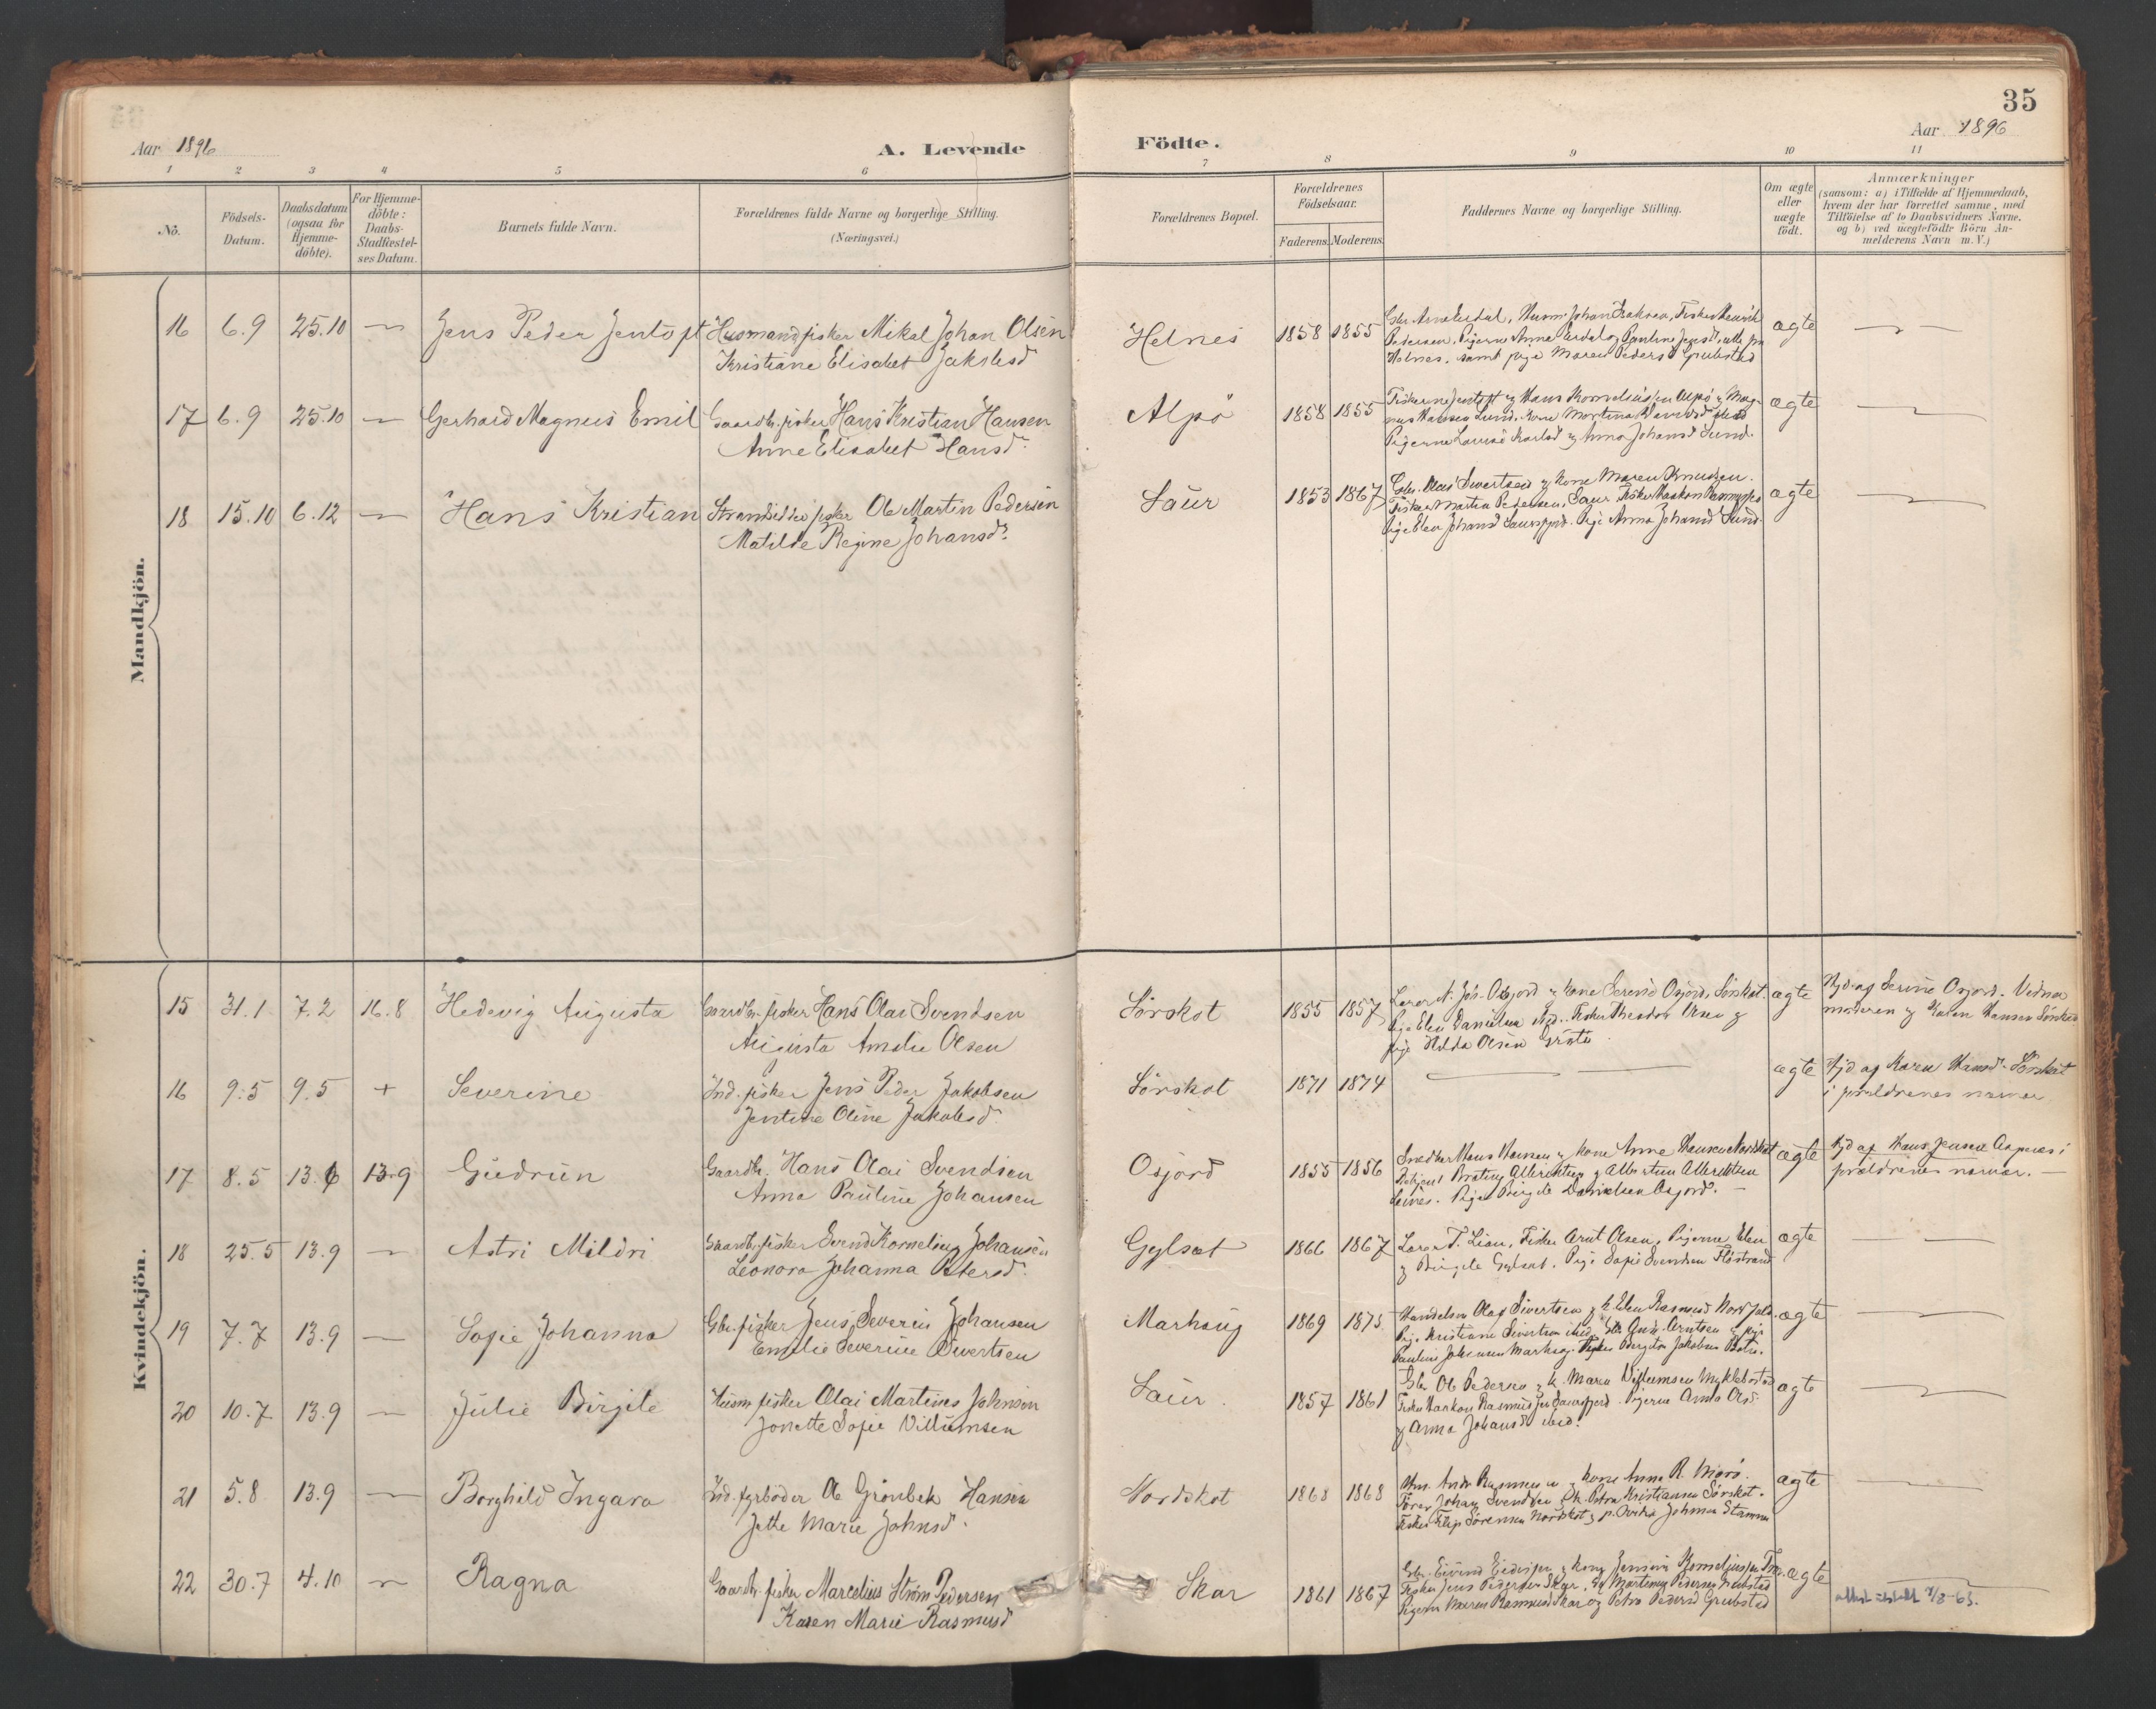 35
Aar 1896
A. Levende
Födte.
Aar 1896
1 2 3 4 5 6 7 8 9 10 11
No.
Födsels-
Datum.
Daabsdatum
(ogsaa for
Hjemme-
döbte).
For Hjemme-
döbte:
Daabs-
Stadfæstel-
ses Datum.
Barnets fulde Navn.
Forældrenes fulde Navne og borgerlige Stilling.
(Næringsvei.)
Forældrenes Bopæl.
Forældrenes
Födselsaar.
Faderens. Moderens.
Faddernes Navne og borgerlige Stilling.
Om ægte
eller
uægte
födt.
Anmærkninger
(saasom: a) i Tilfælde af Hjemmedaab,
hvem der har forrettet samme, med
Tilföielse af to Daabsvidners Navne.
og b) ved uægtefödte Börn An-
melderens Navn m. V.)
Mandkjön.
16 6.9 25.10 — Jens Peder Jentoft Husmand fisker Mikal Johan Olsen
Kristiane Elisabet Jakobsd
Helnes 1858 1855
Pedersen, Pigerne Anna
Helnes, samt pige Maren Pedersd Grubstad
ægte —
17 6.9 25.10 — Gerhard Magnus Emil Gaardbr. fisker Hans Kristian Hansen
Anne Elisabet Hansd.
Alpö 1858 1855 Fiskerne Jentoft og Hans Kornelius
Hansen Lund, kone Martina
Pigerne Lovise Karlsd og Anna Johansd Lund.
ægte —
18 15.10 6.12 — Hans Kristian Strandsidder fisker Ole Martin Pedersen
Matilde Regine Johansd.
Saur 1853 1867 Gbr. Olai Sivertsen og kone Maren Knudsen.
Fisker Martin Pedersen, Saur, fisker Haakon
Pige Elen Johansd Saursfjord. Pige Anna Johansd Lund.
ægte —
Kvindekjön.
15 31.1 7.2 16.8 Hedevig Augusta Gaardbr. fisker Hans Olai Svendsen
Augusta Amalie Olsen
Sörskot 1855 1857 Lærer N. Joh. Osjord og kone Serine Osjord, Sörskot.
Pige Elen Danielsen Fisker Theodor Olsen og
pige Hilda Olsen
ægte Hjd. af Serine Osjord. Vidner
moderen og Karen Hansen Sörskot
16 9.5 9.5 + Severine Ind. fisker Jens Peder Jakobsen
Jentine Oline Jakobsd.
Sörskot 1871 1874 — —
ægte Hjd af Karen Hansd. Sörskot
i forældrenes nærvær
17 8.5 13.6 13.9 Gudrun Gaardbr. Hans Olai Svendsen
Anna Pauline Johansen
Osjord 1855 1856 Snedker Hans Hansen og kone Anne Hansen Nordskot
Albrektsen og Albertine Albrektsen
Pige Birgite Danielsen Osjord. —
ægte Hjd af Hans Jensen i
forældrenes nærvær. —
18 25.5 13.9 — Astri Mildri Gaardbr. fisker Svend Kornelius Johansen
Leonora Johanna Petersd.
Gylset 1866 1867 Lærer T. Lian, Fisker Arnt Olsen, Pigerne Elen
og Birgite Gylset. Pige Sofie Svendsen Flöstrand
ægte — —
19 7.7 13.9 — Sofie Johanna Gbr. fisker Jens Severin Johansen
Emilie Severine Sivertsen
Marhaug 1869 1873 Handelsm Olaf Sivertsen og k. Elen Rasmusd Nordfold.
Pige Kristiane Sivertsen ibid. Arntsen og pige
Pauline Johansen Marhaug. Jakobsen
ægte —
20 10.7 13.9 — Julie Birgite Husm fisker Olai Martinus Johnsen
Jonette Sofie Villumsen
Saur. 1857 1861 Gbr Ole Pedersen og k. Maren Villumsen Myklebostad
Fisker Haakon Saursfjord. Pigerne
og Anna Johansd ibid.
ægte —
21 5.8 13.9 — Borghild Ingara Ind. fyrböder Ole Grönbek Hansen
Jette Marie Johnsd.
Nordskot 1868 1868 Hm. Andr Rasmussen og kone Anna R.
Johan Svendsen Petra Kristiansen Sörskot.
Fisker Filip Sörensen Nordskot
ægte —
22 30.7 4.10 — Ragna Gaardbr. fisker Marcelius Ström Pedersen
Karen Marie Rasmusd
Skar 1861 1867 Gbr. Eivind
Fisker Jens Pedersen Skar, Martinus Pedersen Grubstad
Pigerne Maren Rasmusd Skar og Petra Pedersd Grubstad
ægte —
attest utstedt 7/8-63.